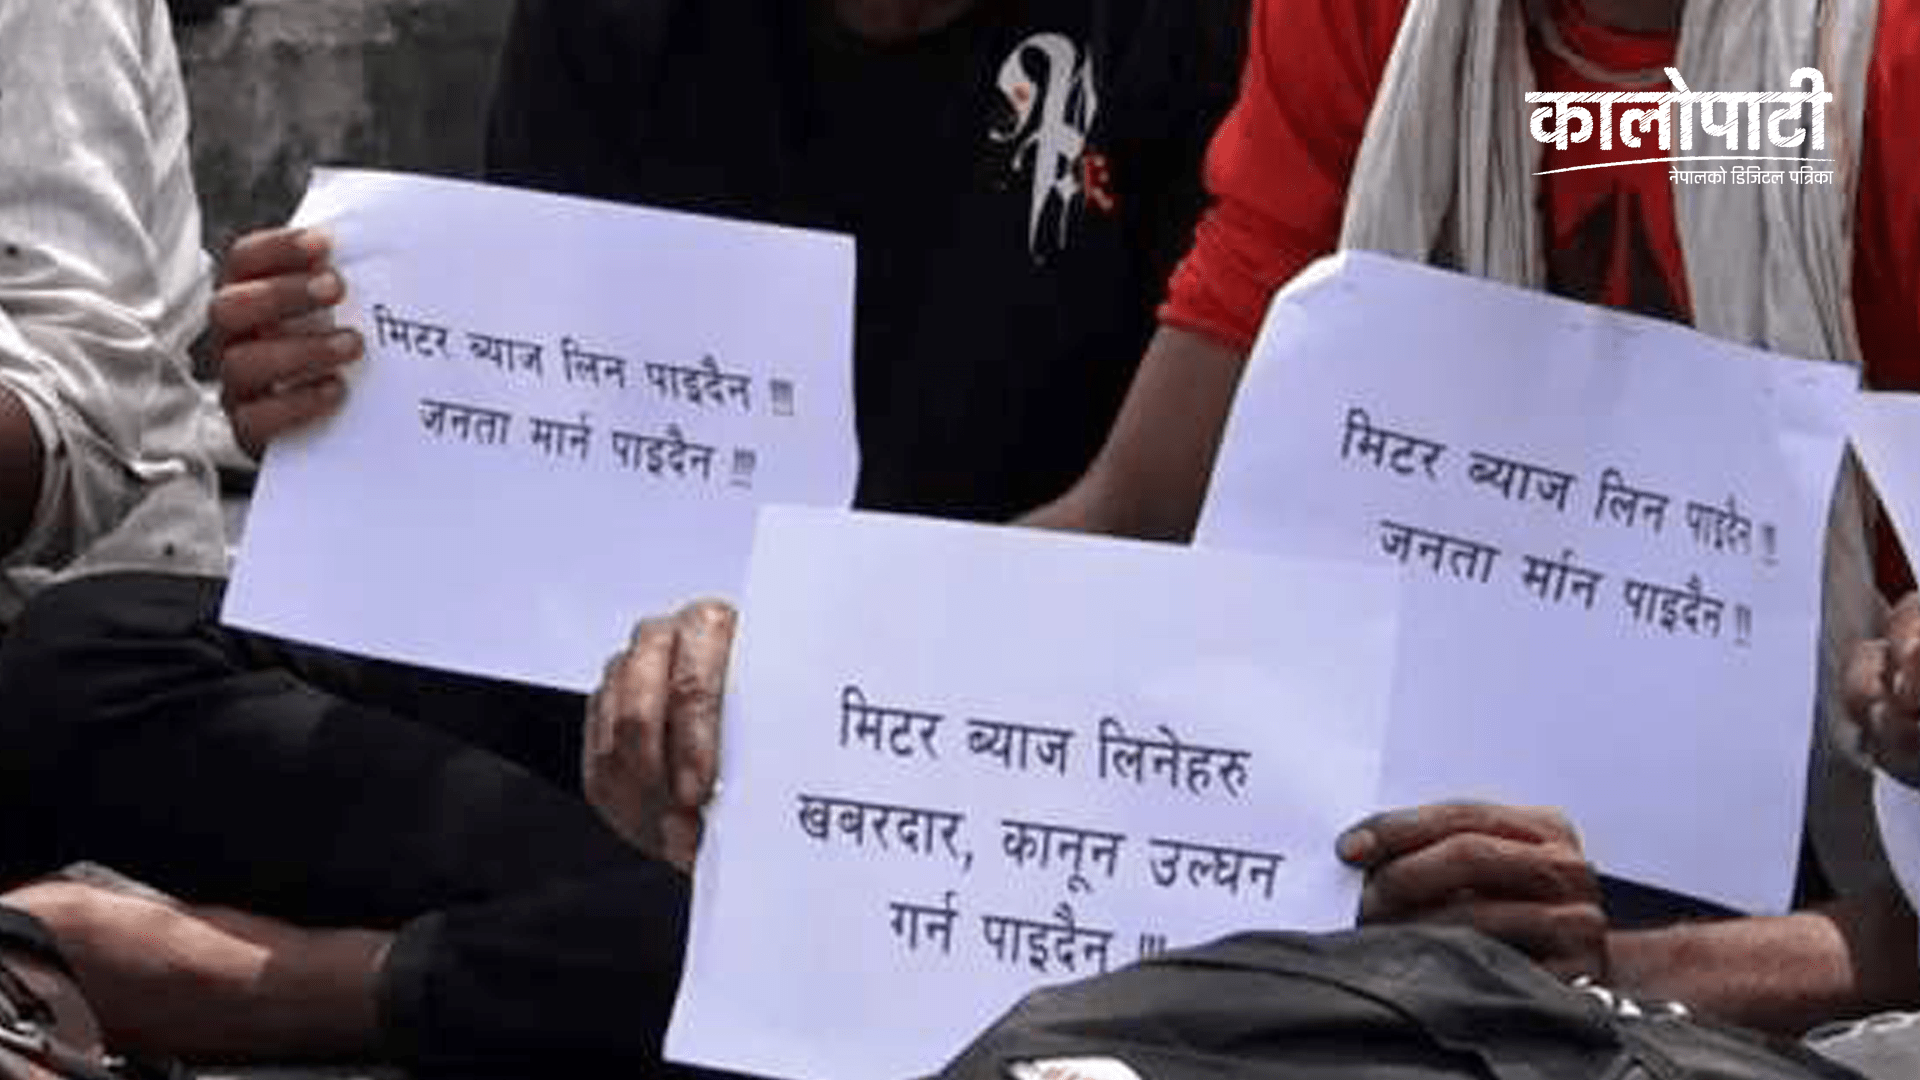 कालोपाटी
नेपालको डिजिटल पत्रिका
मिटर ब्याज लिन पाइदैन !!!
जनता मार्न पाइदैन !!!
मिटर ब्याज लिन पाइदैन !!!
जनता र्मान पाइदैन !!!
मिटर ब्याज लिनेहरु
खबरदार, कानून उल्घन
गर्न पाइदैन !!!